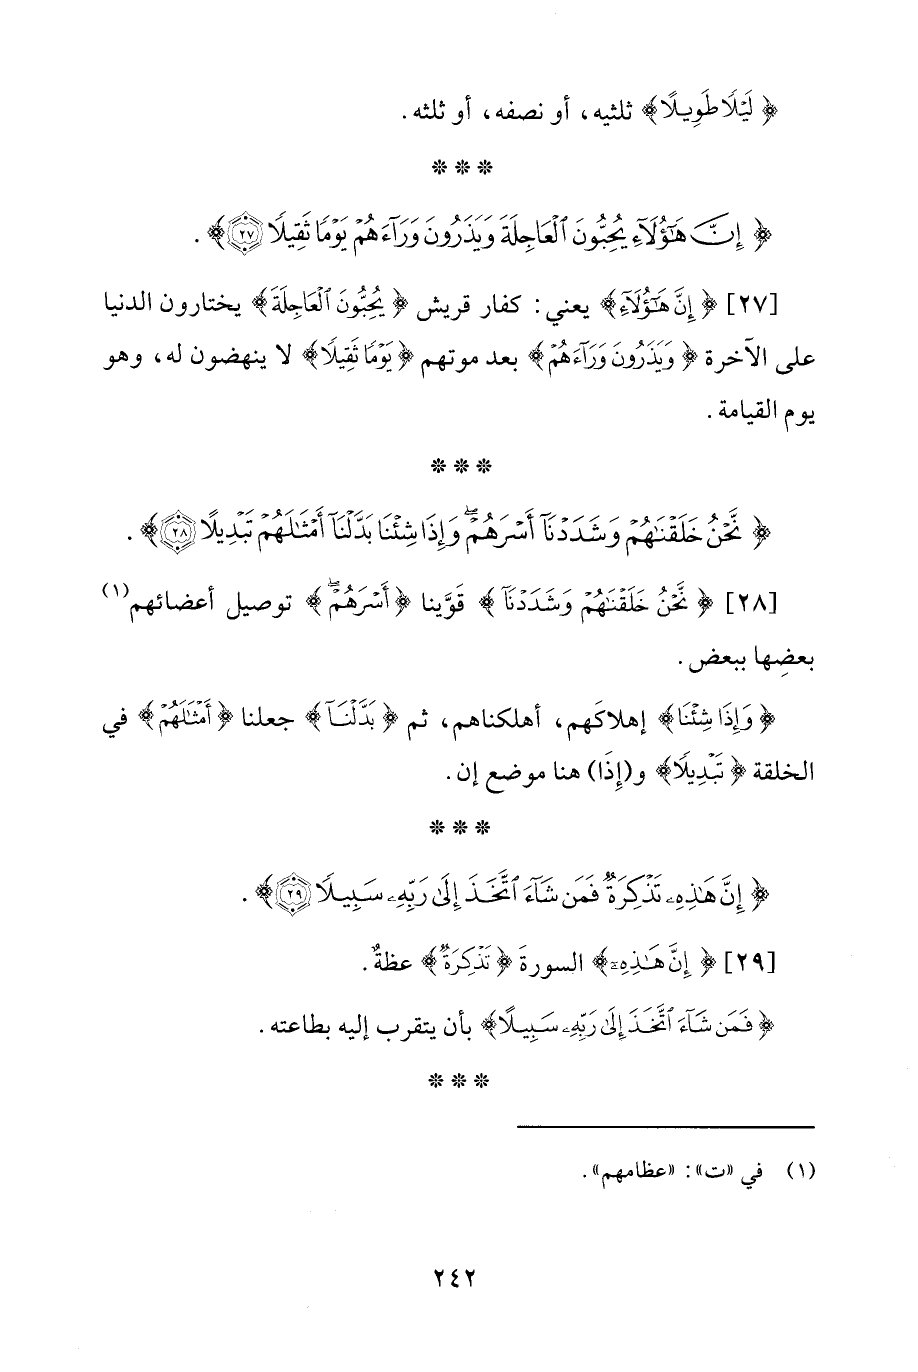 ﴿لَيْلًا طَوِيلًا﴾ ثلثيه، أو نصفه، أو ثلثه.
* * *
﴿إِنَّ هَٰٓؤُلَآءِ يُحِبُّونَ ٱلْعَاجِلَةَ وَيَذَرُونَ وَرَآءَهُمْ يَوْمًا ثَقِيلًا ٢٧﴾.
[٢٧] ﴿إِنَّ هَٰٓؤُلَآءِ﴾ يعني: كفار قريش ﴿يُحِبُّونَ ٱلْعَاجِلَةَ﴾ يختارون الدنيا
على الآخرة ﴿وَيَذَرُونَ وَرَآءَهُمْ﴾ بعد موتهم ﴿يَوْمًا ثَقِيلًا﴾ لا ينهضون له، وهو
يوم القيامة.
* * *
﴿نَّحْنُ خَلَقْنَٰهُمْ وَشَدَدْنَآ أَسْرَهُمْ ۖ وَإِذَا شِئْنَا بَدَّلْنَآ أَمْثَٰلَهُمْ تَبْدِيلًا ٢٨﴾.
[٢٨] ﴿نَّحْنُ خَلَقْنَٰهُمْ وَشَدَدْنَآ﴾ قَوَّينا ﴿أَسْرَهُمْ ۖ﴾ توصيل أعضائهم(١)
بعضِها ببعض.
﴿وَإِذَا شِئْنَا﴾ إهلاكَهم، أهلكناهم، ثم ﴿بَدَّلْنَآ﴾ جعلنا ﴿أَمْثَٰلَهُمْ﴾ في
الخلقة ﴿تَبْدِيلًا﴾ و(إِذَا) هنا موضع إن.
* * *
﴿إِنَّ هَٰذِهِۦ تَذْكِرَةٌ ۖ فَمَن شَآءَ ٱتَّخَذَ إِلَىٰ رَبِّهِۦ سَبِيلًا ٢٩﴾.
[٢٩] ﴿إِنَّ هَٰذِهِۦ﴾ السورةَ ﴿تَذْكِرَةٌ ۖ﴾ عظةٌ.
﴿فَمَن شَآءَ ٱتَّخَذَ إِلَىٰ رَبِّهِۦ سَبِيلًا﴾ بأن يتقرب إليه بطاعته.
* * *
(١) في «ت»: «عظامهم».
٢٤٢